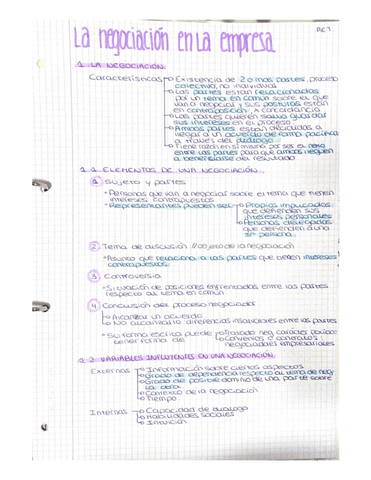 La negociación en la empresa
1. LA NEGOCIACIÓN
Características → Existencia de 2 o más partes, proceso
colectivo, no individual
Las partes están relacionadas
por un tema en común sobre el que
van a negociar y sus posturas están
en contraposición a concordancia
Las partes quieren salvaguardar
sus intereses en el proceso
Ambas partes están dedicadas a
llegar a un acuerdo de forma pacífica
a través del diálogo
entre las partes para que ambas lleguen
a beneficiarse del resultado
1.1. ELEMENTOS DE UNA NEGOCIACIÓN
1 Sujeto y partes
Personas que van a negociar sobre el tema que tienen
intereses contrapuestos
Representantes pueden ser → Propios implicados
que defienden sus
intereses personales
Personas delegadas
que defienden a una
persona
2 Tema de discusión // objeto de la negociación
Asunto que relaciona a las partes que tienen intereses
contrapuestos
3 Controversia
Situación de posiciones enfrentadas entre las partes
respecto al tema en común
4 Conclusión del proceso negociador
Alcanzar un acuerdo
No alcanzarlo diferencias insalvables entre las partes
Su forma escrita puede → Tratado neg. carácter político
tener forma de Convenios o contratos:
negociadores empresariales
1.2 VARIABLES INFLUYENTES EN UNA NEGOCIACIÓN
Externas → Información sobre ciertos aspectos
Grado de dependencia respecto al tema de neg.
Grado de posible dominio de una parte sobre
la otra
Contexto de la negociación
Tiempo
Internas → Capacidad de diálogo
Habilidades sociales
Intuición